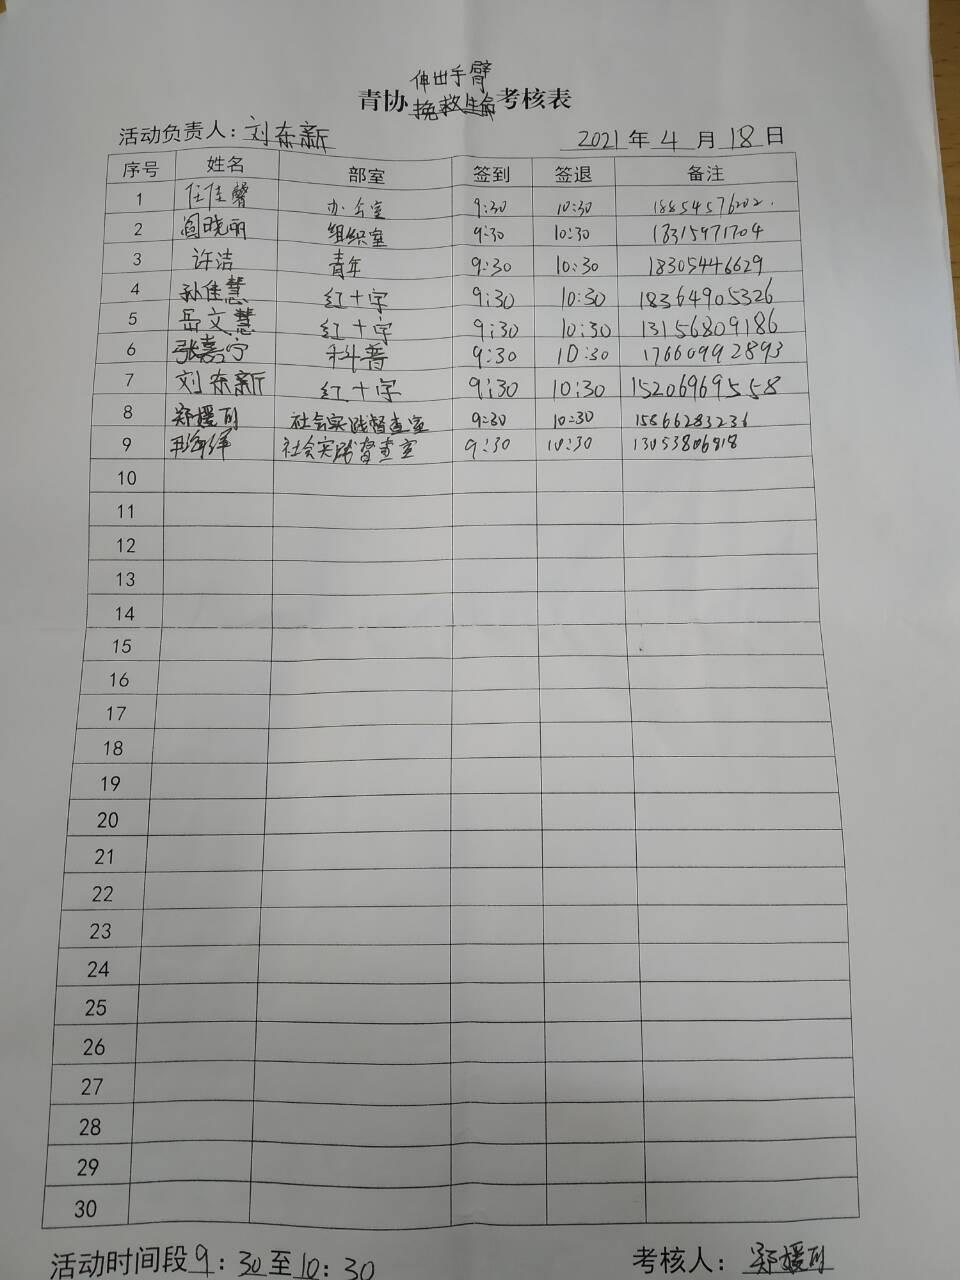 伸出手臂
青协挽救生命考核表
活动负责人：刘东新 2021年4月18日
序号 姓名 部室 签到 签退 备注
1 任佳馨 办公室 9:30 10:30 18854576202.
2 阎晓丽 组织室 9:30 10:30 18315471704
3 许洁 青年 9:30 10:30 18305446629
4 孙佳慧 红十字 9:30 10:30 18364905326
5 岳文慧 红十字 9:30 10:30 13156809186
6 张嘉宁 科普 9:30 10:30 17660992893
7 刘东新 红十字 9:30 10:30 15206969558
8 郑媛 社会实践督查室 9:30 10:30 15866283236
9 社会实践督查室 9:30 10:30
10
11
12
13
14
15
16
17
18
19
20
21
22
23
24
25
26
27
28
29
30
活动时间段9：30至10：30 考核人：郑媛